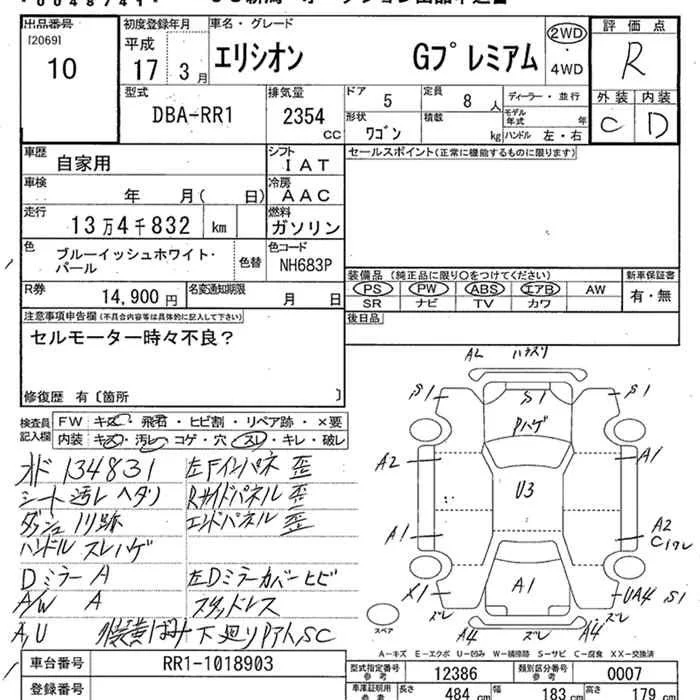 出品番号
[2069]
10
初度登録年月
平成
17 3月
車名・グレード
エリシオン Gプレミアム
2WD
・
4WD
評価点
R
外装 内装
C D
型式
DBA-RR1
排気量
2354
CC
ドア 5 定員 8 人
形状 ワゴン 積載 kg
ディーラー・並行
モデル年式 年
ハンドル 左・右
車歴 自家用
シフト
IAT
セールスポイント(正常に機能するものに限ります)
車検 年 月( 日)
冷房
AAC
走行 13万4千832 km
燃料
ガソリン
色 ブルーイッシュホワイト・
パール
色替
色コード
NH683P
装備品 (純正品に限り○をつけてください)
新車保証書
PS PW ABS エアB AW
SR ナビ TV カワ
有・無
R券 14,900 円
名変通知期限 月 日
後日品
注意事項申告欄(不具合内容等は具体的に記入して下さい)
セルモーター時々不良?
修復歴 有〔箇所 〕
検査員
記入欄
FW キズ・飛石・ヒビ割・リペア跡・×要
内装 キズ・汚レ・コゲ・穴・スレ・キレ・破レ
オド 134831
左Fインパネ 歪
シート 汚レ ヘタリ
Rサイドパネル 歪
ダッシュ ノリ跡
エンドパネル 歪
ハンドル スレハゲ
Dミラー A
左Dミラーカバー ヒビ
A/W A
スタッドレス
A,U
下廻り Pアト,SC
A2 ハナズリ
S1 S1 S1
Pハゲ
A2 A1
U3
A1 A2
C1クレ
A1
X1 ズレ UA4 S1
ズレ
A4 ズレ A4
スペア
A―キズ E―エクボ U―凹み W―補修跡 S―サビ C―腐食 XX―交換済
車台番号 RR1-1018903
登録番号
型式指定番号
参考
12386
類別区分番号
参考
0007
車庫証明用
参考
長さ 484 cm 幅 183 cm 高さ 179 cm